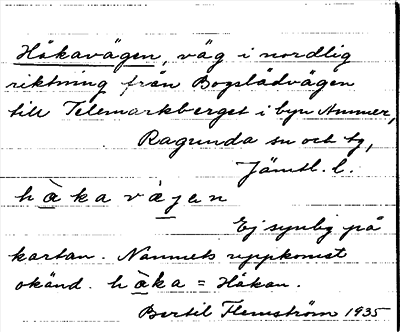 Håkavägen, väg i nordlig
riktning från Bogslådvägen
till Telemarkberget i byn Ammer,
Ragunda sn och tg,
Jämtl. l.
hàka vàjen
Ej synlig på
kartan. Namnets uppkomst
okänd. hàka = Håkan.
Bertil Flemström 1935